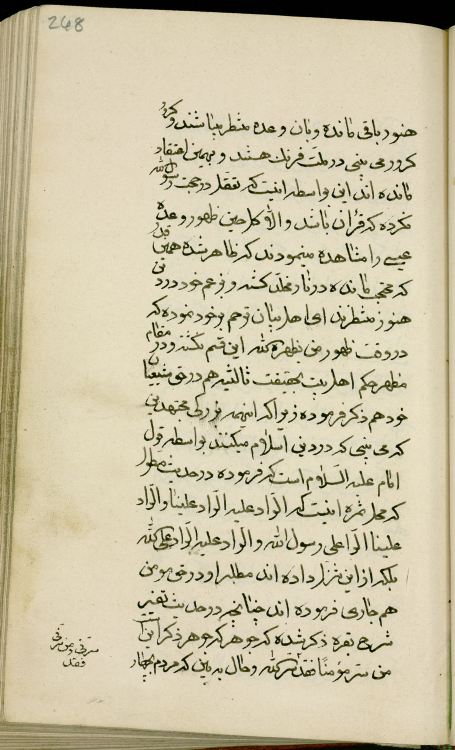 248
هنوز باقی مانده و بان وعده منتظر میباشند و کرور
کرور می بینی در ملت فرنك هستند و بهمین اعتقاد
مانده اند این بواسطه اینست که تعقل در حجت رسول الله
نکرده که قران باشد و الا کل حین ظهور وعده
عیسی را مشاهده مینمودند که ظاهر شده همین قدر
که محتجب مانده در نار مخلد گشته و بزعم خود در دین
هنوز منتظرند ای اهل بیان ترحم بر خود نموده که
در وقت ظهور من یظهره الله این قسم نگشته و در مقام
مظهر حکم اهل بیت بحقیقت ثالثیه هم در حق شیعیان
خود هم ذکر فرموده زیرا که اینهمه بزرگی مجتهدین
که می بینی که در دین اسلام میکنند بواسطه قول
امام علیه السلام است که فرموده در حدیث مطول
که محل ثمره اینست که الراد علیه الراد علینا و الراد
علینا الراد علی رسول الله و الراد علیه الراد علی الله
بلکه از این تنزل داده اند مطلب را و در حق مومن
هم جاری فرموده اند چنانچه در حدیث
شرح نقره ذکر شده که جوهر کل جوهر ذکر این است
من سر مؤمنا فقد سر الله و حال به بین که مردم بچهار
فقد